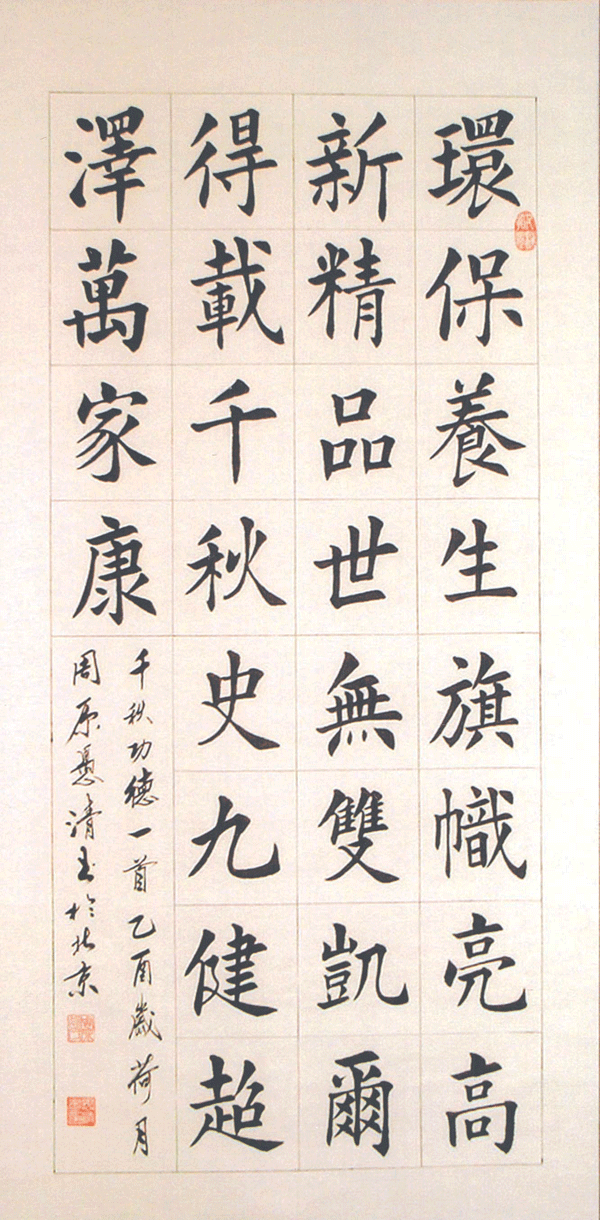 環保養生旗幟亮高
新精品世無雙凱爾
得載千秋史九健超
澤萬家康
千秋功德一首乙酉歲荷月
周原憑清書於北京